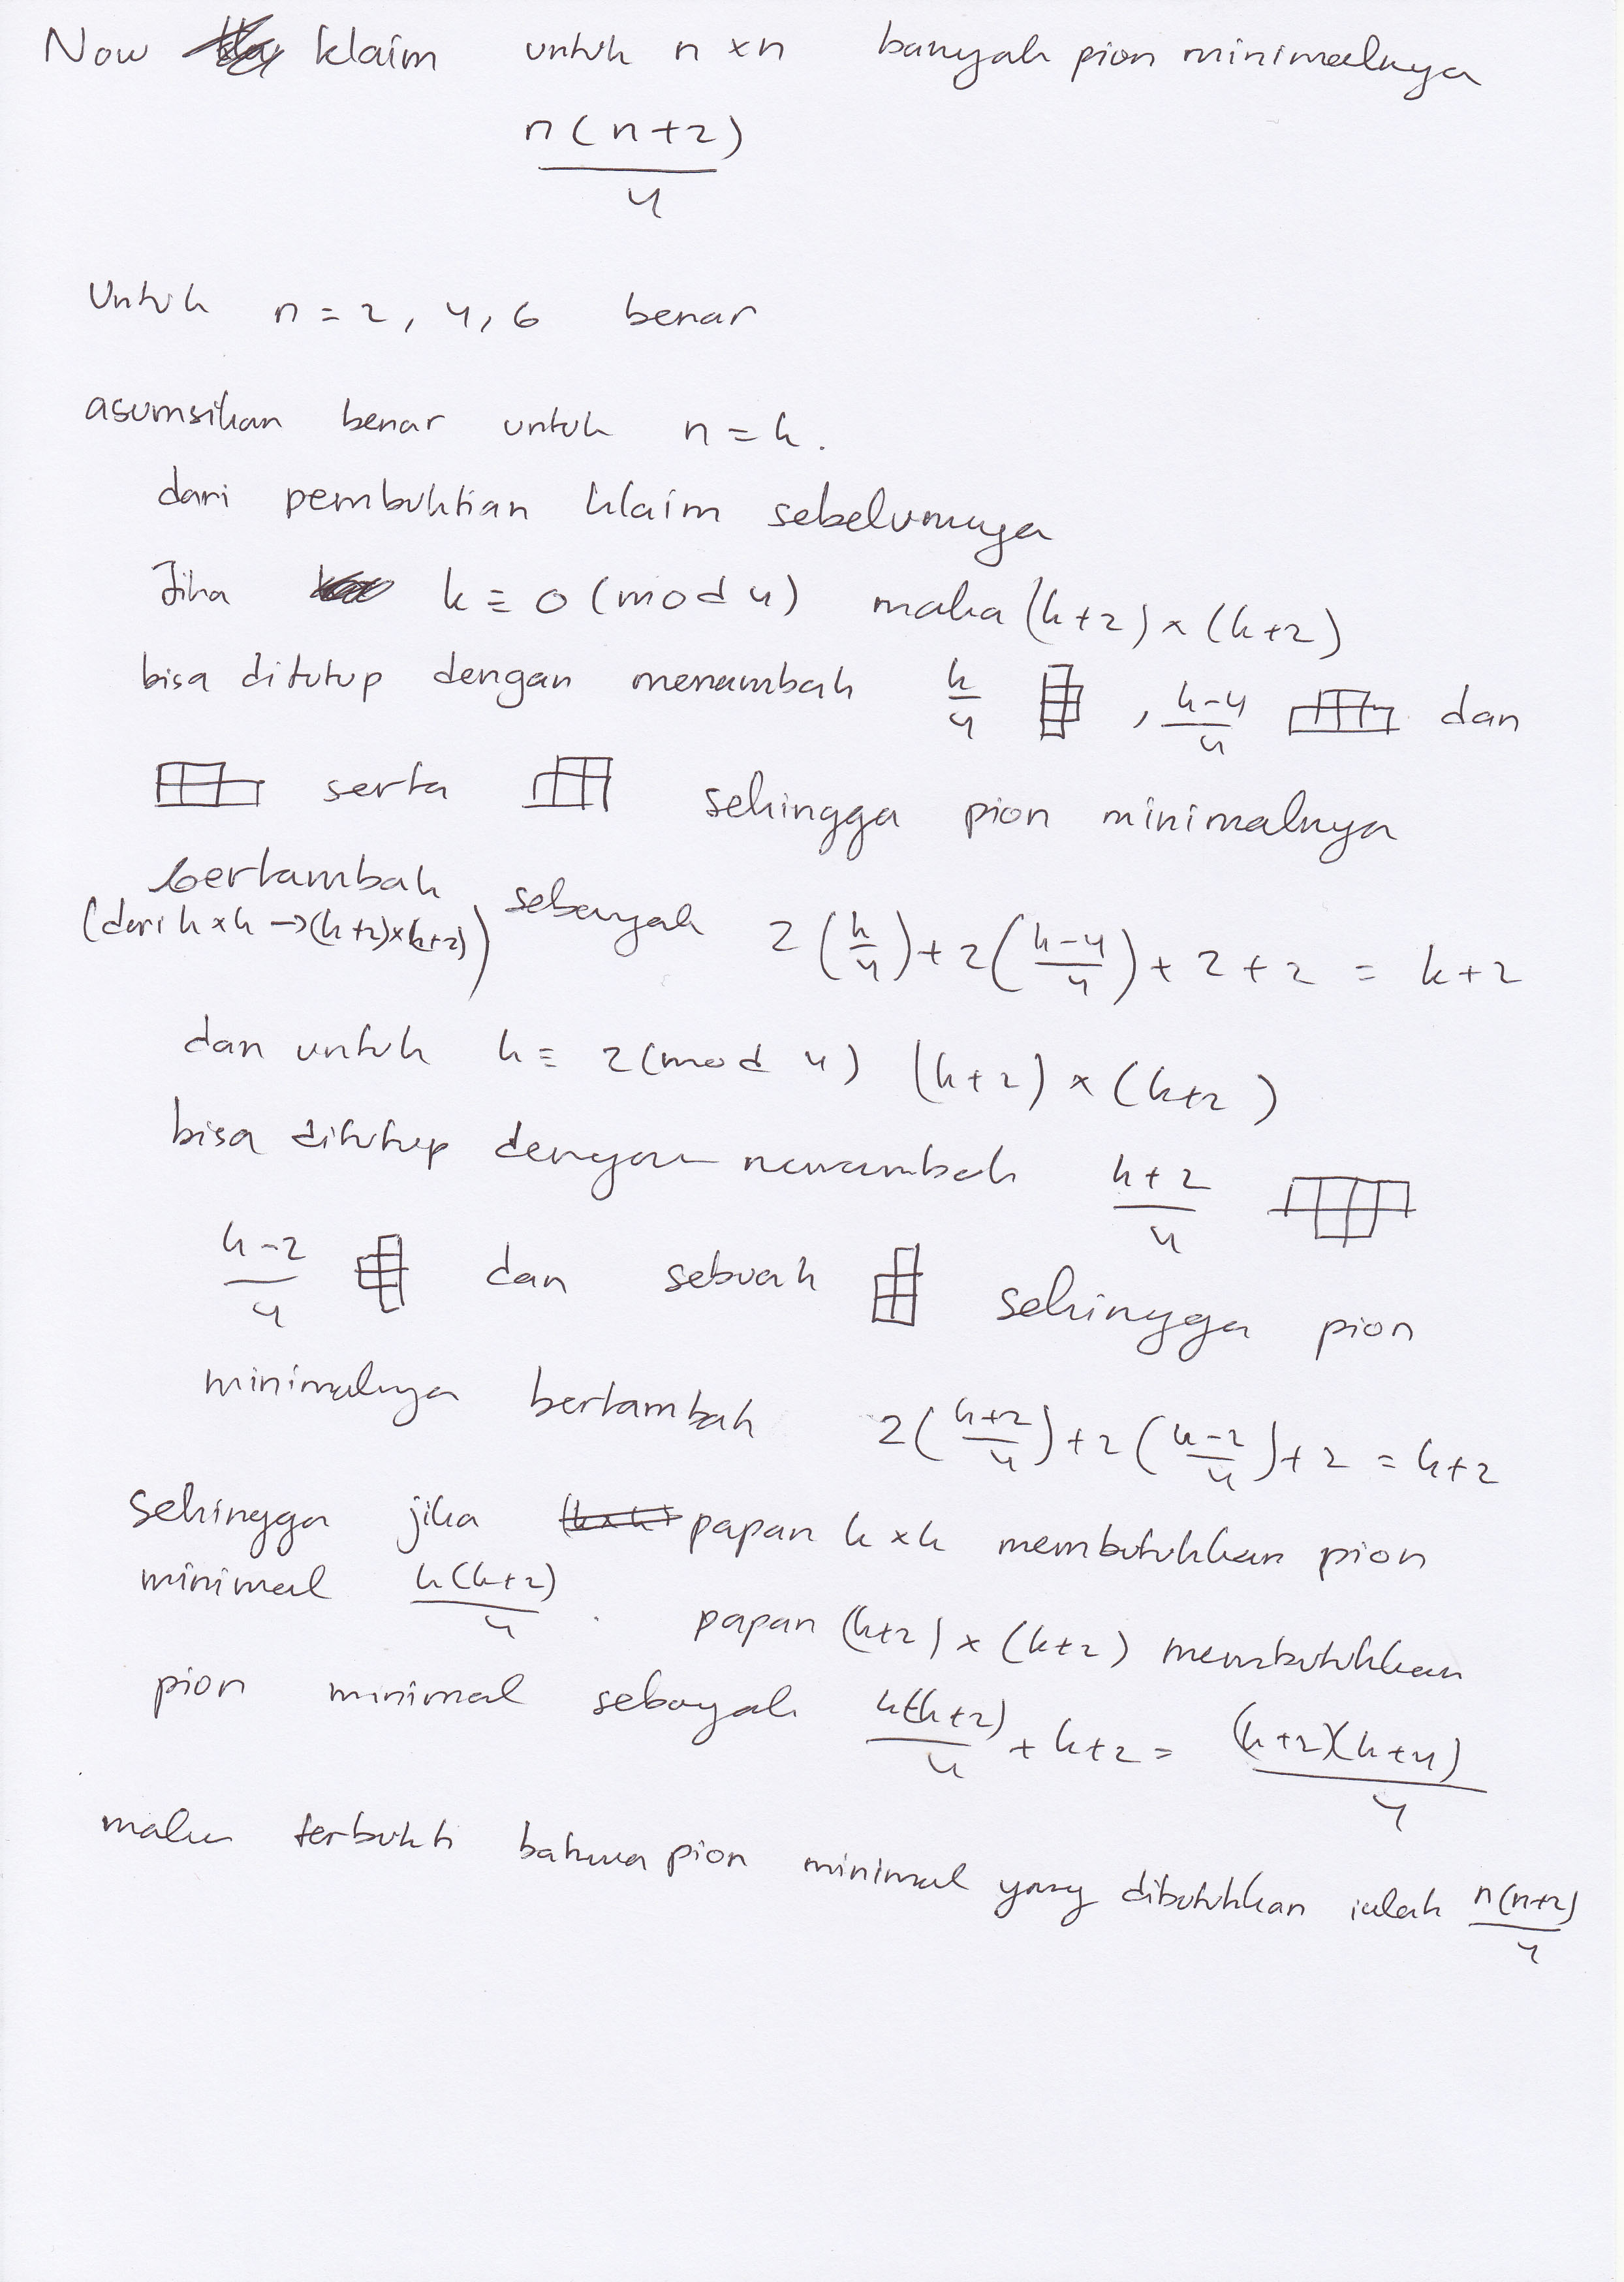 Now klaim untuk n × n banyak pion minimalnya
n(n+2)/4
Untuk n = 2, 4, 6 benar
asumsikan benar untuk n = k.
dari pembuktian klaim sebelumnya
Jika k ≡ 0 (mod 4) maka (k+2) × (k+2)
bisa ditutup dengan menambah k/4 , k-4/4 dan
serta sehingga pion minimalnya
bertambah sebanyak 2(k/4) + 2(k-4/4) + 2 + 2 = k+2
(dari k×k → (k+2)×(k+2))
dan untuk k ≡ 2 (mod 4) (k+2) × (k+2)
bisa ditutup dengan menambah k+2/4
k-2/4 dan sebuah sehingga pion
minimalnya bertambah 2(k+2/4) + 2(k-2/4) + 2 = k+2
sehingga jika papan k×k membutuhkan pion
minimal k(k+2)/4 . papan (k+2) × (k+2) membutuhkan
pion minimal sebanyak k(k+2)/4 + k+2 = (k+2)(k+4)/4
maka terbukti bahwa pion minimal yang dibutuhkan ialah n(n+2)/4